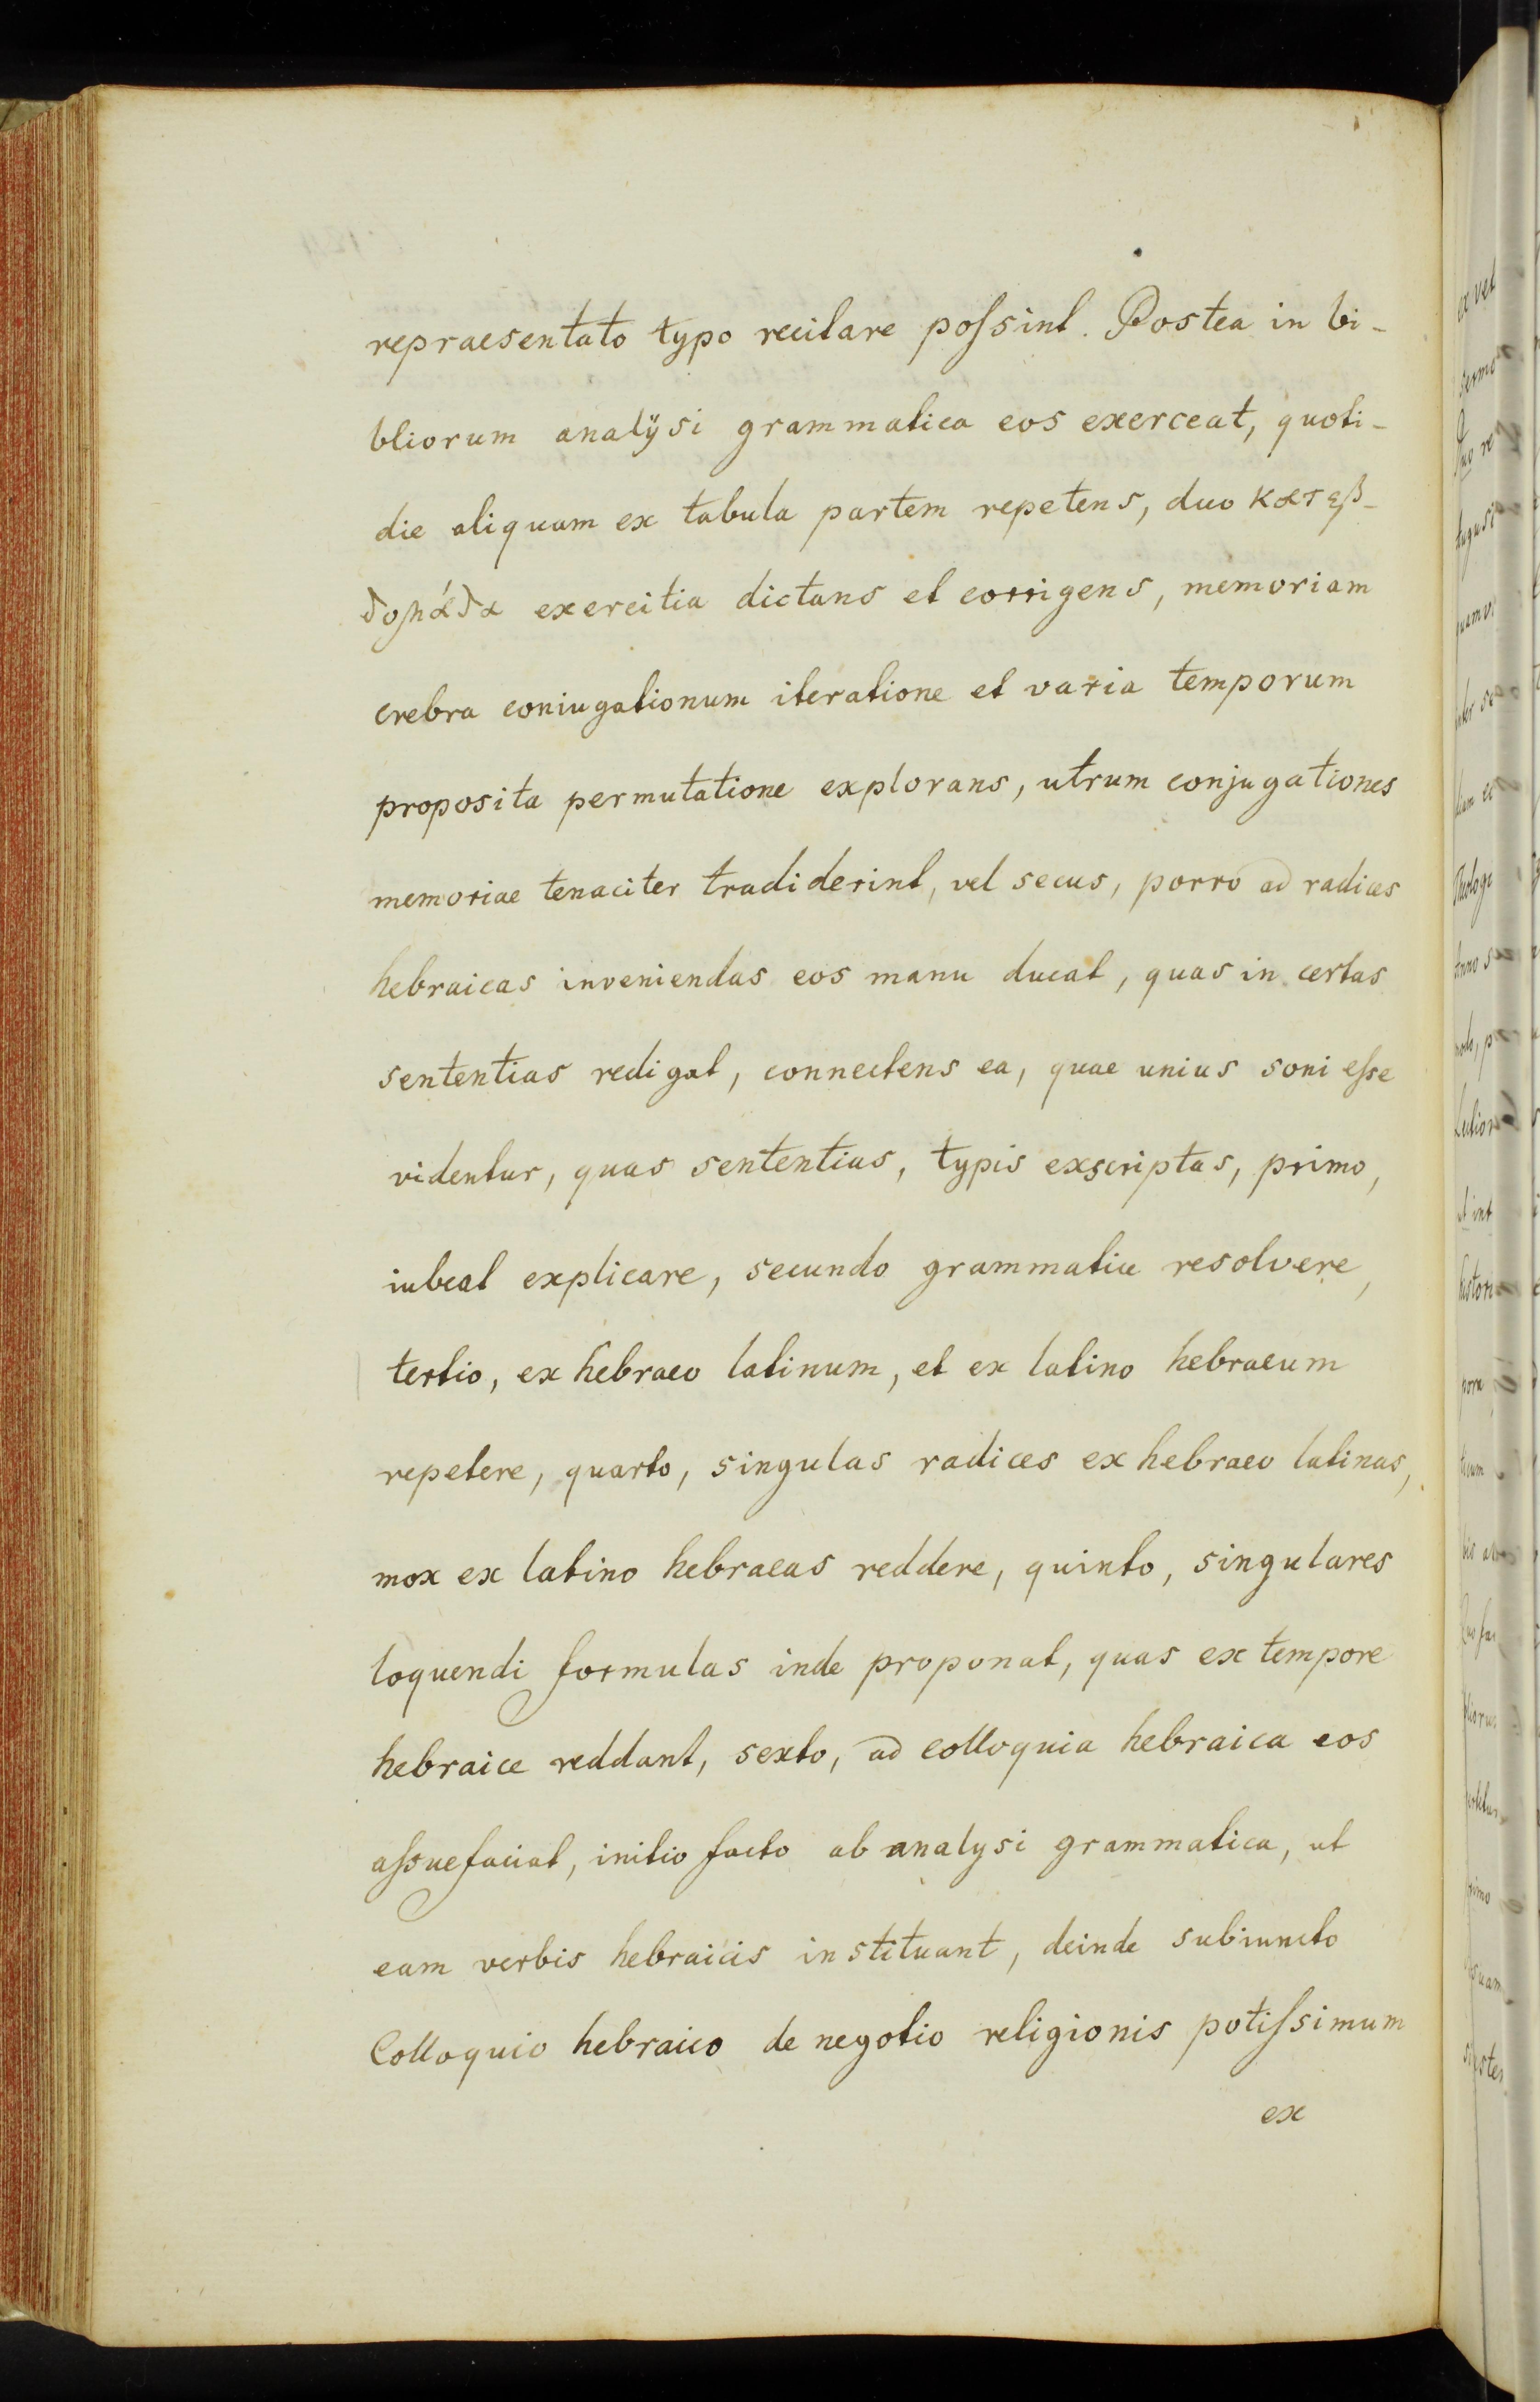 repraesentato typo recitare poſsint. Postea in bi-
bliorum analÿsi grammatica eos exerceat, quoti-
die aliquam ex tabula partem repetens, duo κατεβ-
δομάδα exercitia dictans et corrigens, memoriam
crebra coniugationum iteratione et varia temporum
proposita permutatione explorans, utrum conjugationes
memoriae tenaciter tradiderint, vel secus, porro ad radices
hebraicas inveniendas eos manu ducat, quas in certas
sententias redigat, connectens ea, quae unius soni eſse
videntur, quas sententias, typis exscriptas, primo,
iubeat explicare, secundo grammatice resolvere,
tertio, ex hebraeo latinum, et ex latino hebraeum
repetere, quarto, singulas radices ex hebraeo latinas,
mox ex latino hebraeas reddere, quinto, singulares
loquendi formulas inde proponat, quas ex tempore
hebraice reddant, sexto, ad colloquia hebraica eos
aſsuefaciat, initio facto ab analysi grammatica, ut
eam verbis hebraicis instituant, deinde subiuncto
Colloquio hebraico de negotio religionis potiſsimum
ex